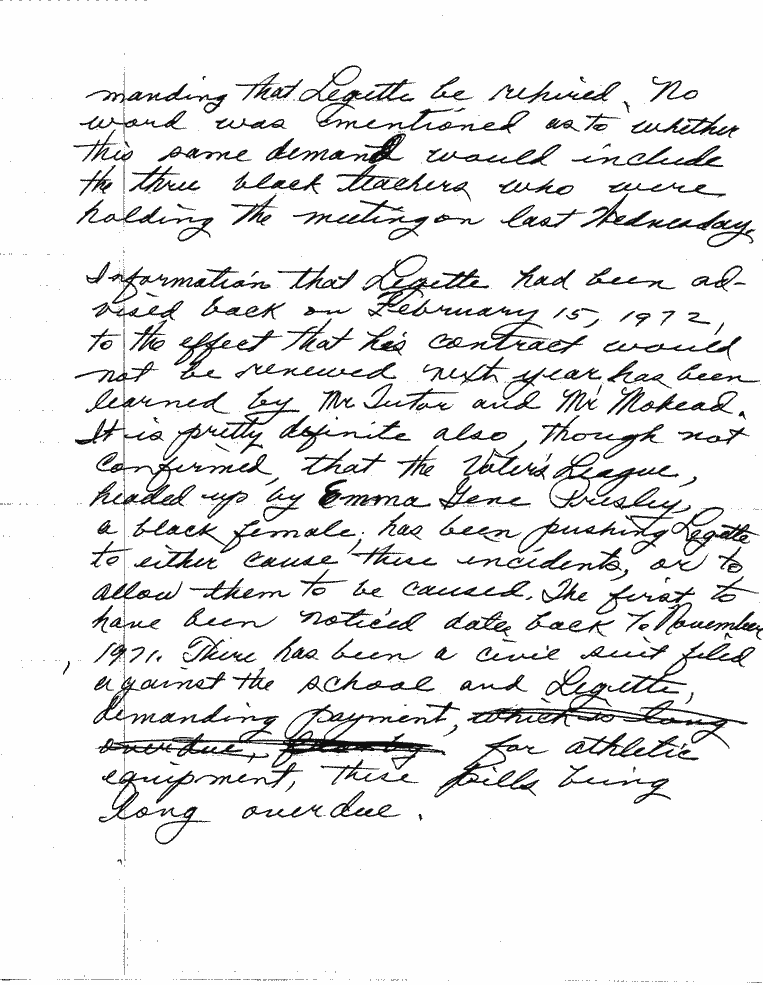 manding that Legette be rehired. No
word was mentioned as to whether
this same demand would include
the three black teachers who were
holding the meeting on last Wednesday.
Information that Legette had been ad-
vised back on February 15, 1972,
to the effect that his contract would
not be renewed next year, has been
learned by Mr Tutor and Mr Mohead.
It is pretty definite also, though not
confirmed, that the Voters League,
headed up by Emma Gene Presley,
a black female, has been pushing Legette
to either cause these incidents, or to
allow them to be caused. The first to
have been noticed dates back to November
1971. There has been a civil suit filed
against the school and Legette,
demanding payment, which is long
overdue, for athletic
equipment, these bills being
long overdue.